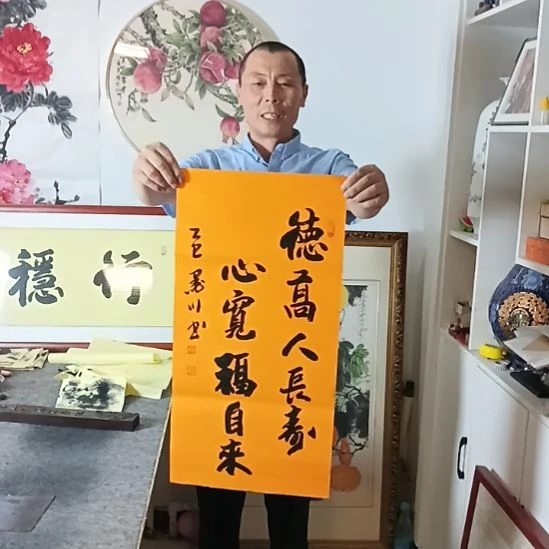 德高人長壽
心寬福自來
墨川书
行穩